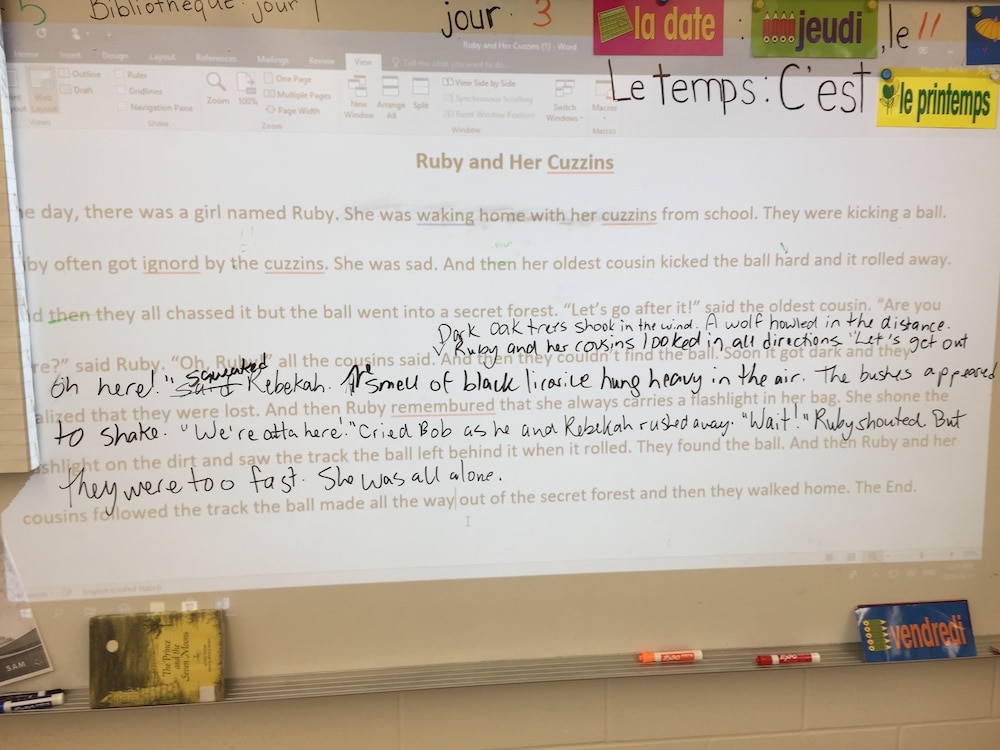 5 Bibliothèque jour 1
jour 3 la date : jeudi, le 11
Le temps: C'est le printemps
Ruby and Her Cuzzins (1) - Word
Layout References Mailings Review View Tell me what you want to do...
Web Layout Outline Draft Views
Ruler Gridlines Navigation Pane Show
Zoom 100% One Page Multiple Pages Page Width Zoom
New Window Arrange All Split View Side by Side Synchronous Scrolling Reset Window Position Window
Switch Windows Macros Macros
Ruby and Her Cuzzins
e day, there was a girl named Ruby. She was waking home with her cuzzins from school. They were kicking a ball.
by often got ignord by the cuzzins. She was sad. And then her oldest cousin kicked the ball hard and it rolled away.
d then they all chassed it but the ball went into a secret forest. “Let’s go after it!” said the oldest cousin. “Are you
Dark oak trees shook in the wind. A wolf howled in the distance.
Ruby and her cousins looked in all directions "Let's get out
re?” said Ruby. “Oh, Ruby!” all the cousins said. And then they couldn’t find the ball. Soon it got dark and they
oh here!" said squeaked Rebekah. The smell of black licorice hung heavy in the air. The bushes appeared
alized that they were lost. And then Ruby remembured that she always carries a flashlight in her bag. She shone the
to shake. "We're outta here!" Cried Bob as he and Rebekah rushed away. "Wait!" Ruby shouted. But
ashlight on the dirt and saw the track the ball left behind it when it rolled. They found the ball. And then Ruby and her
they were too fast. She was all alone.
cousins followed the track the ball made all the way out of the secret forest and then they walked home. The End.
English (United States)
SAM
The Prince and the Seven Moons
EXPO
EXPO
vendredi